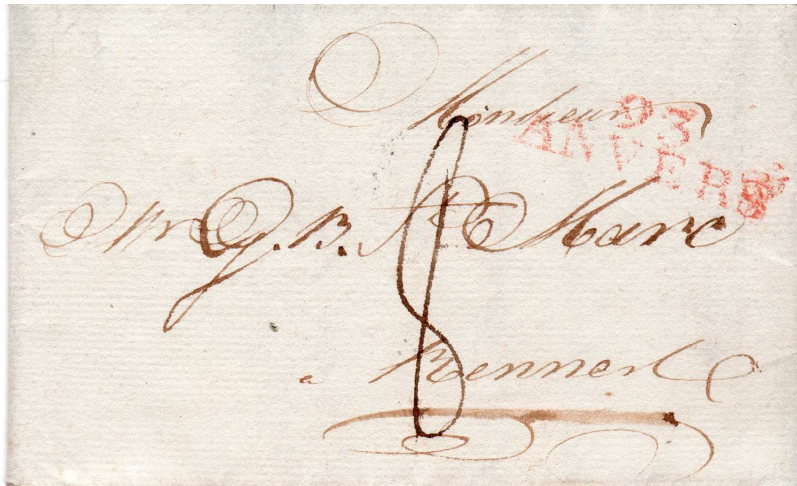 Monsieur
93
ANVERS
Mr J. B. St Marc
8
a Rennes